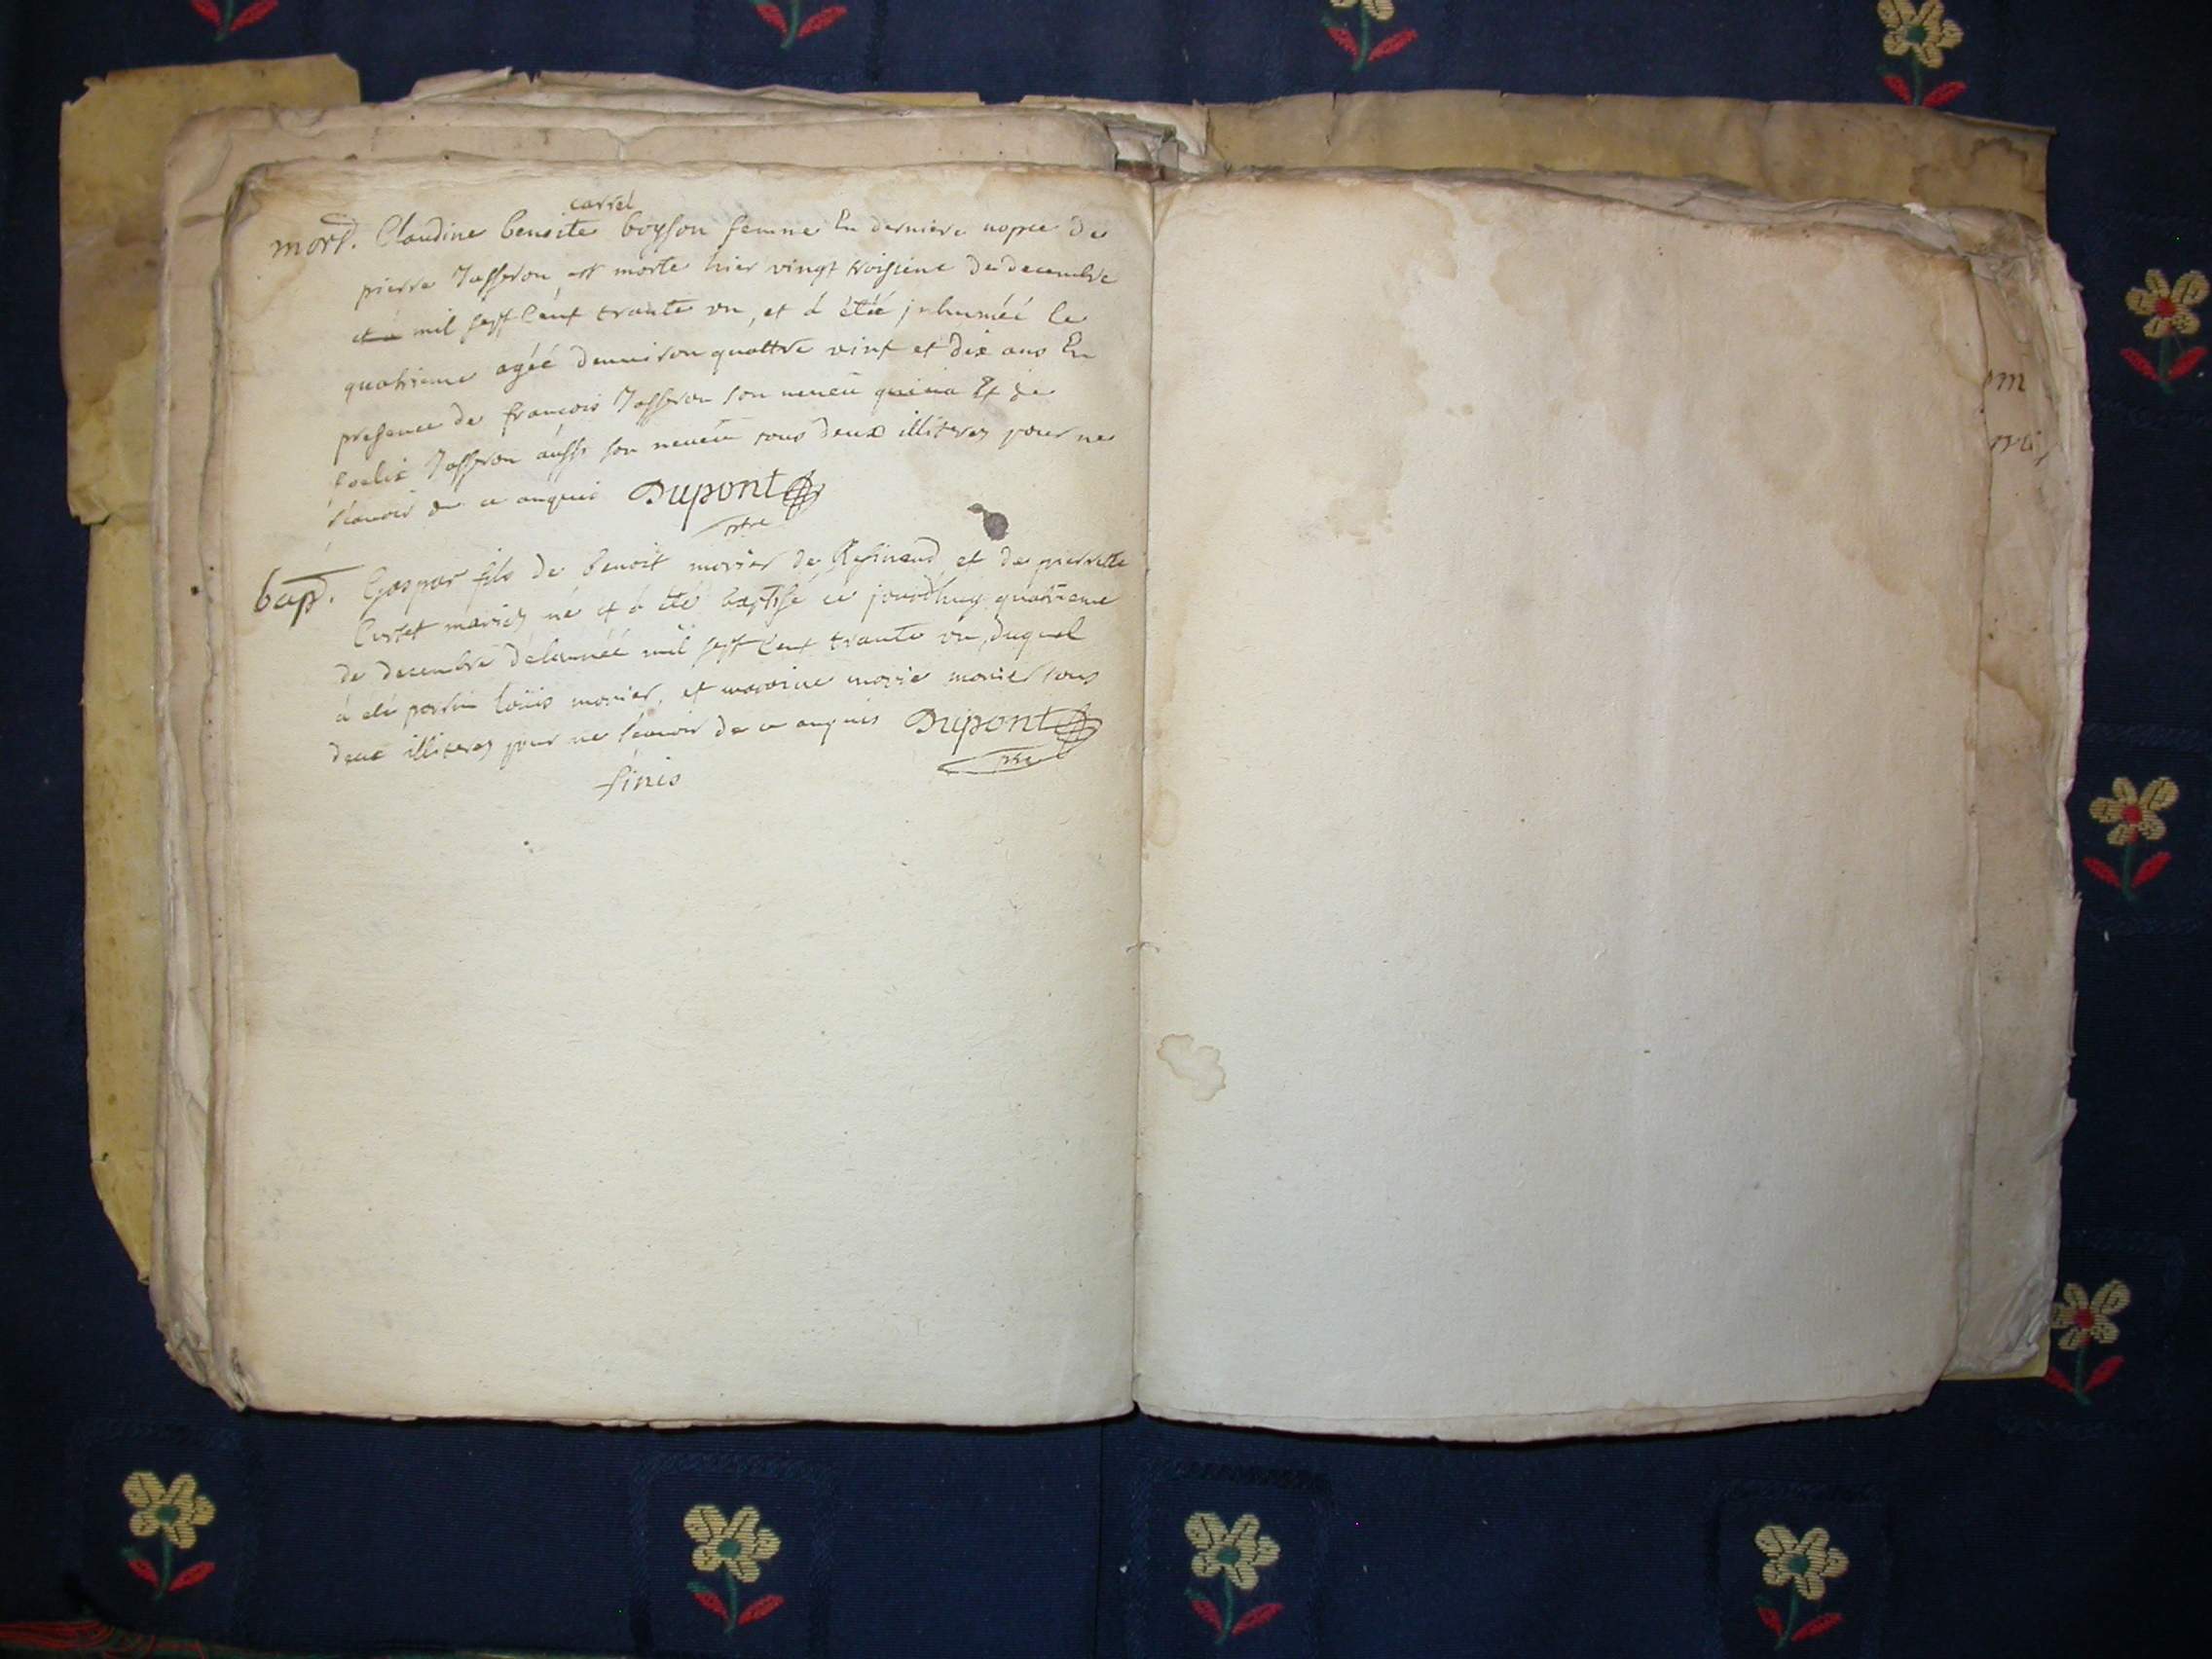 carrel
mort. Claudine benoite boyson femme En derniere nopce de
pierre Jasseron, est morte hier vingt troisieme de decembre
et a mil sept Cent trante un, et à étéé jnhuméé le
quatrieme agéé denuiron quattre vint et dix ans En
presence de françois Jasseron son neueu Et de
foelix Jasseron aussi son neueu tous deux illiterez pour ne
scauoir de ce anquis Dupont
ptre
bap. Gaspar fils de benoit morier de et de pierrette
Curtet mariez né et à été baptisé ce jourdhuy quatrieme
de decembre delannéé mil sept Cent trante un, duquel
à été parrin loüis morier, et maraine morier tous
deux illiterez pour ne scauoir de ce anquis Dupont
ptre
finis
m